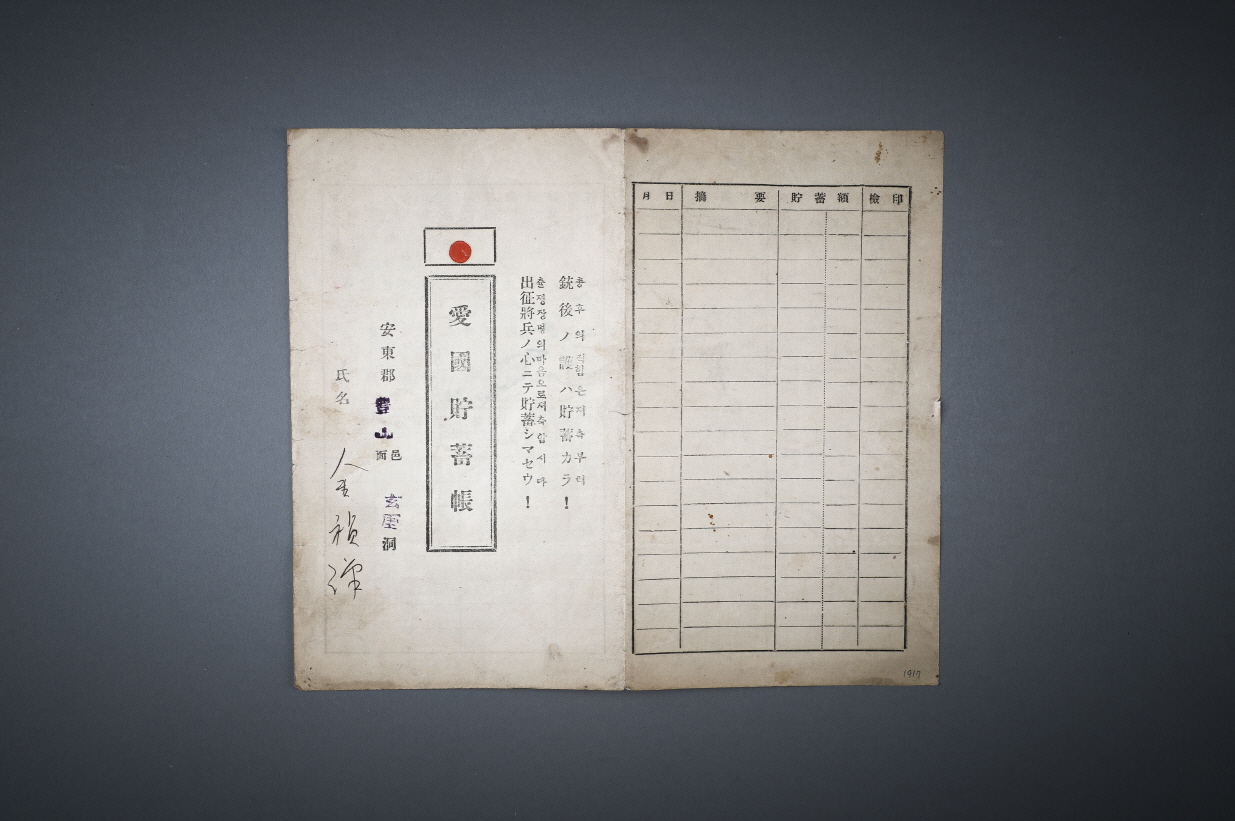 月日 摘要 貯蓄額 檢印
총후의 힘은저축부터
銃後ノ護ハ貯蓄カラ！
출정장병의마음으로저축합시다
出征將兵ノ心ニテ貯蓄シマセウ！
愛國貯蓄帳
安東郡 豊山 邑面 玄厓洞
氏名 金禎
1917